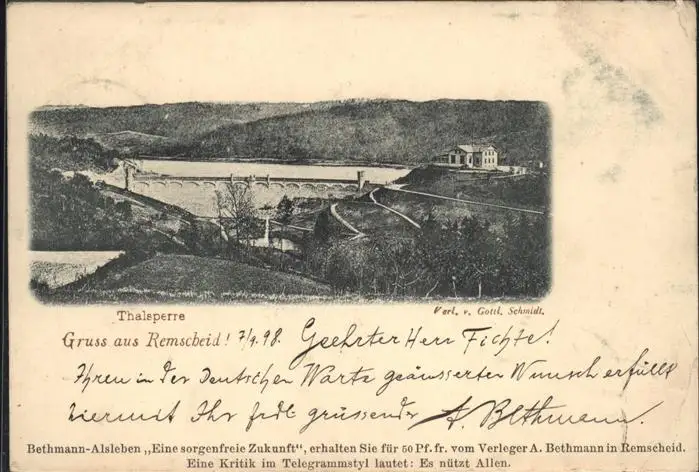 Thalsperre
Verl. v. Gottl. Schmidt.
Gruss aus Remscheid! 7/9.98. Geehrter Herr Fichte!
Ihren in der Deutschen Warte geäusserten Wunsch erfüllt
hiermit Ihr frdl. grüssender A. Bethmann.
Bethmann-Alsleben „Eine sorgenfreie Zukunft“, erhalten Sie für 50 Pf. fr. vom Verleger A. Bethmann in Remscheid.
Eine Kritik im Telegrammstyl lautet: Es nützt Allen.